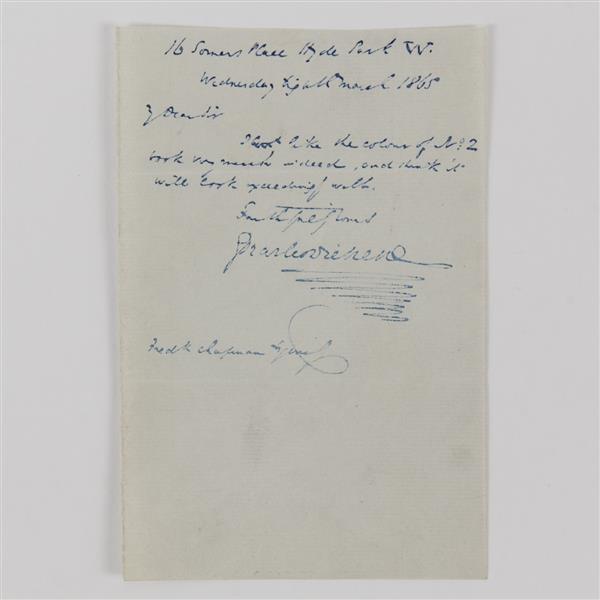 16 Somers Place Hyde Park W.
Wednesday Eighth March 1865
My Dear Sir
I like the colour of No. 2
very much indeed, and think it
will look exceedingly well.
Faithfully Yours
Charles Dickens
Fredk Chapman Esquire